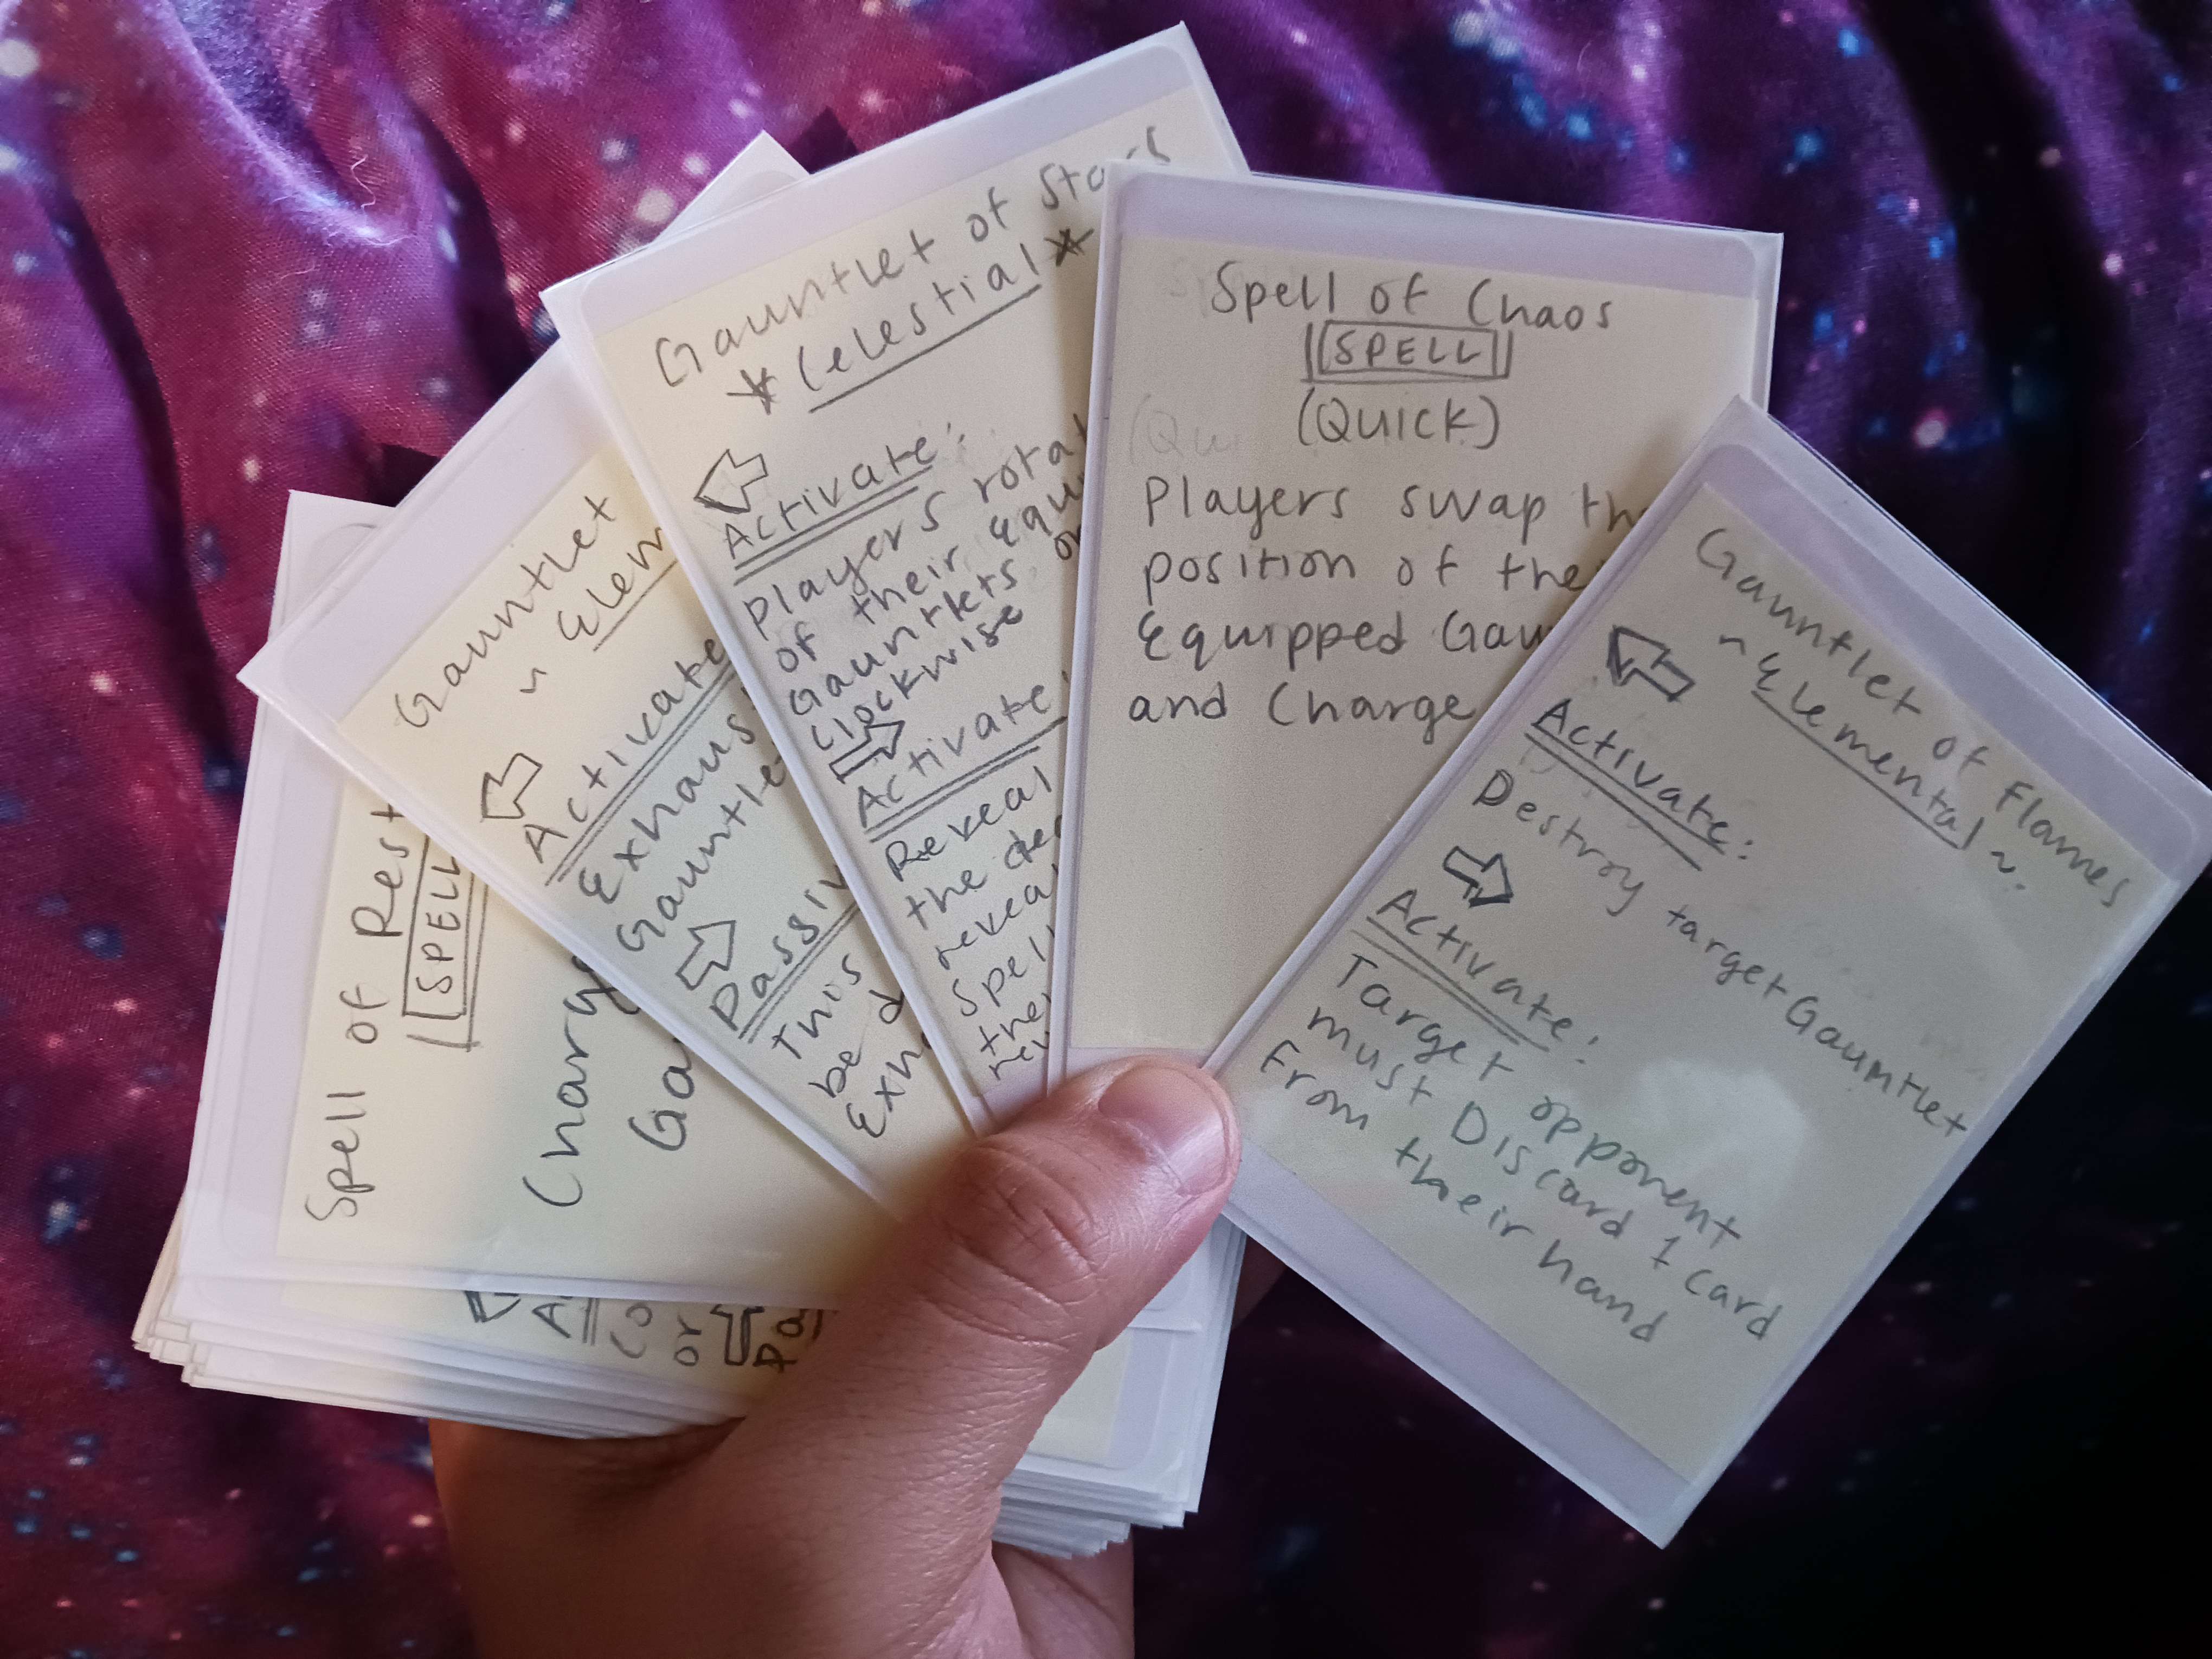 Spell of Rest
SPELL
Charg
Ga
Gauntlet
~ Elem
Activate
Exhaus
Gauntle
Passiv
This
be d
Exh
Gauntlet of Stars
* Celestial *
Activate:
Players rotat
of their equi
Gauntlets or
Clockwise
Activate:
Reveal
the dec
revea
Spell
the
rev
Spell of Chaos
SPELL
(Quick)
Players swap th
position of the
Equipped Gau
and Charge
Gauntlet of Flames
~ Elemental ~
Activate:
Destroy target Gauntlet
Activate:
Target opponent
must Discard 1 card
From their hand
A
Co
or
Pa